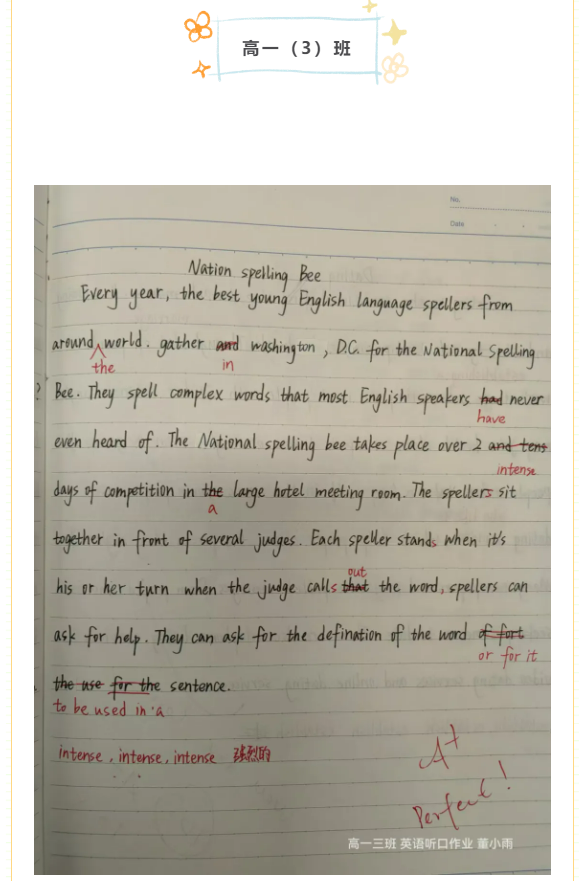 高一（3）班
No.
Date
Nation spelling Bee
Every year, the best young English language spellers from
around world. gather and washington, D.C. for the National Spelling
the in
? Bee. They spell complex words that most English speakers had never
have
even heard of. The National spelling bee takes place over 2 and tens
intense
days of competition in the large hotel meeting room. The spellers sit
a
together in front of several judges. Each speller stands when it's
out
his or her turn when the judge calls that the word, spellers can
ask for help. They can ask for the defination of the word of fort
or for it
the use for the sentence.
to be used in a
intense, intense, intense 强烈的
A+
Perfect!
高一三班 英语听口作业 董小雨